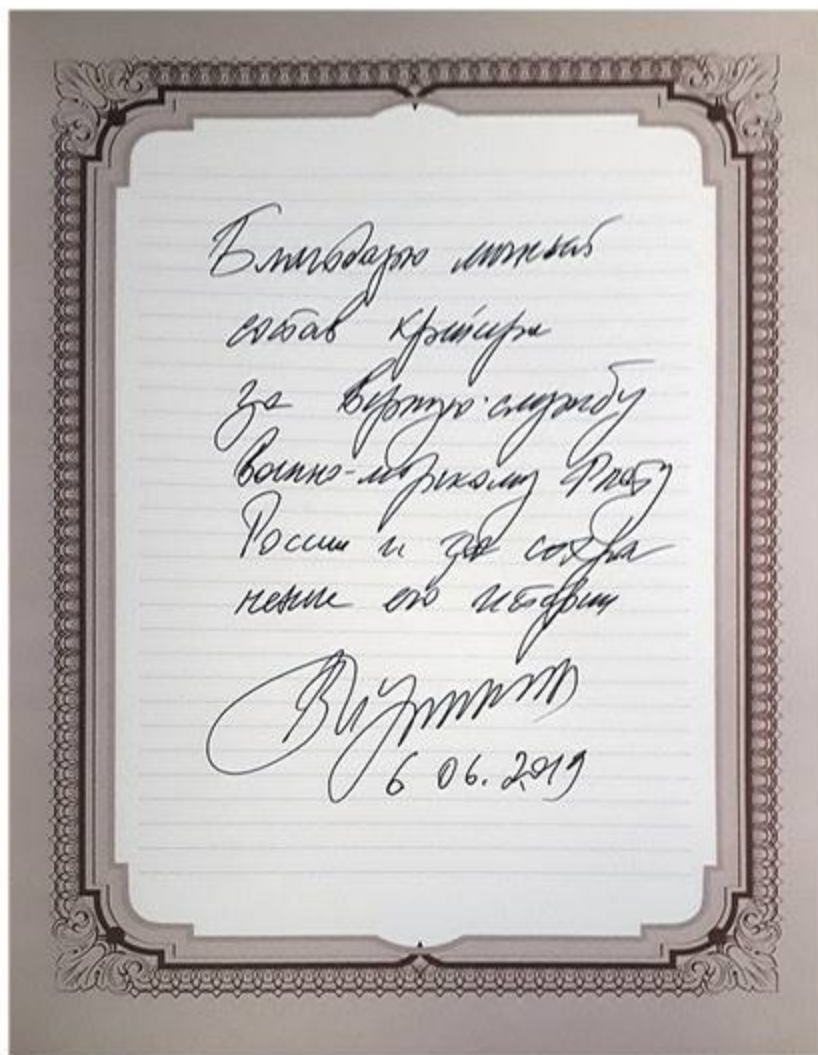 Благодарю личный
состав крейсера
за верную службу
Военно-морскому Флоту
России и за сохра
нение его истории
6 06.2019